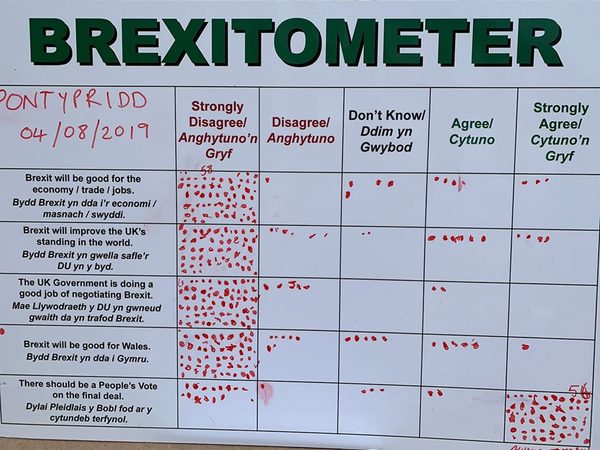 BREXITOMETER
PONTYPRIDD
04/08/2019
Strongly
Disagree/
Anghytuno'n
Gryf
Disagree/
Anghytuno
Don't Know/
Ddim yn
Gwybod
Agree/
Cytuno
Strongly
Agree/
Cytuno'n
Gryf
58
Brexit will be good for the
economy / trade / jobs.
Bydd Brexit yn dda i'r economi /
masnach / swyddi.
Brexit will improve the UK's
standing in the world.
Bydd Brexit yn gwella safle'r
DU yn y byd.
The UK Government is doing a
good job of negotiating Brexit.
Mae Llywodraeth y DU yn gwneud
gwaith da yn trafod Brexit.
Brexit will be good for Wales.
Bydd Brexit yn dda i Gymru.
There should be a People's Vote
on the final deal.
Dylai Pleidlais y Bobl fod ar y
cytundeb terfynol.